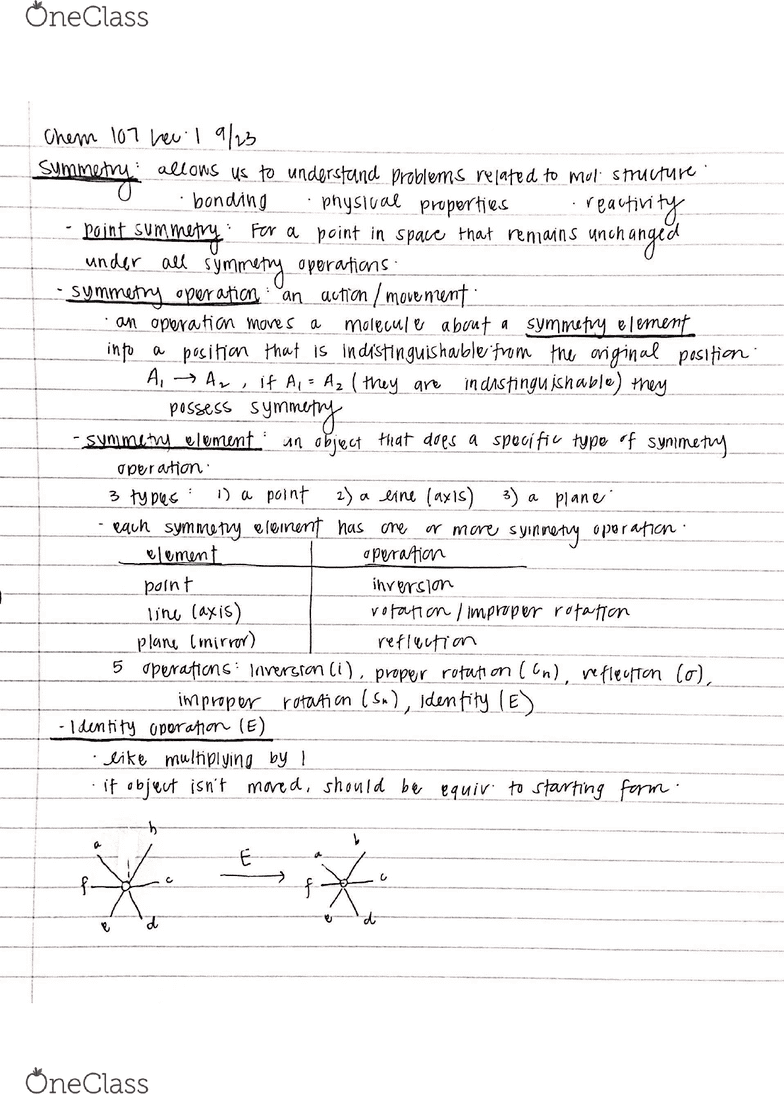 OneClass
Chem 107 Lec. 1 9/23
Symmetry: allows us to understand problems related to mol. structure.
· bonding · physical properties · reactivity
- point symmetry: For a point in space that remains unchanged
under all symmetry operations.
- symmetry operation: an action/movement.
· an operation moves a molecule about a symmetry element
into a position that is indistinguishable from the original position.
A₁ → A₂, if A₁ = A₂ (they are indistinguishable) they
possess symmetry
- symmetry element: an object that does a specific type of symmetry
operation.
3 types: 1) a point 2) a line (axis) 3) a plane.
- each symmetry element has one or more symmetry operation.
element operation
point inversion
line (axis) rotation/improper rotation
plane (mirror) reflection
5 operations: inversion (i), proper rotation (Cn), reflection (σ),
improper rotation (Sn), identity (E)
- Identity operation (E)
· like multiplying by 1
· if object isn't moved, should be equiv. to starting form.
a b f c e d E a b f c e d
OneClass